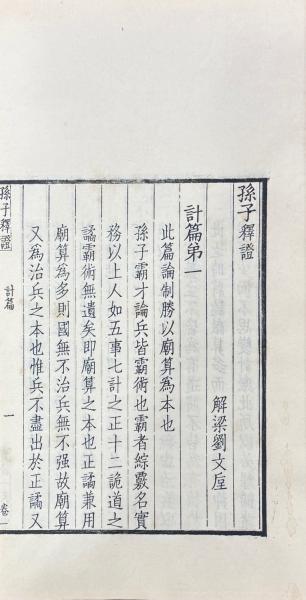 孫子釋證
解梁劉文垕
計篇第一
此篇論制勝以廟算為本也
孫子霸才論兵皆霸術也霸者綜覈名實
務以上人如五事七計之正十二詭道之
譎霸術無遺矣即廟算之本也正譎兼用
廟算為多則國無不治兵無不强故廟算
又為治兵之本也惟兵不盡出於正譎又
孫子釋證
計篇
一
卷一